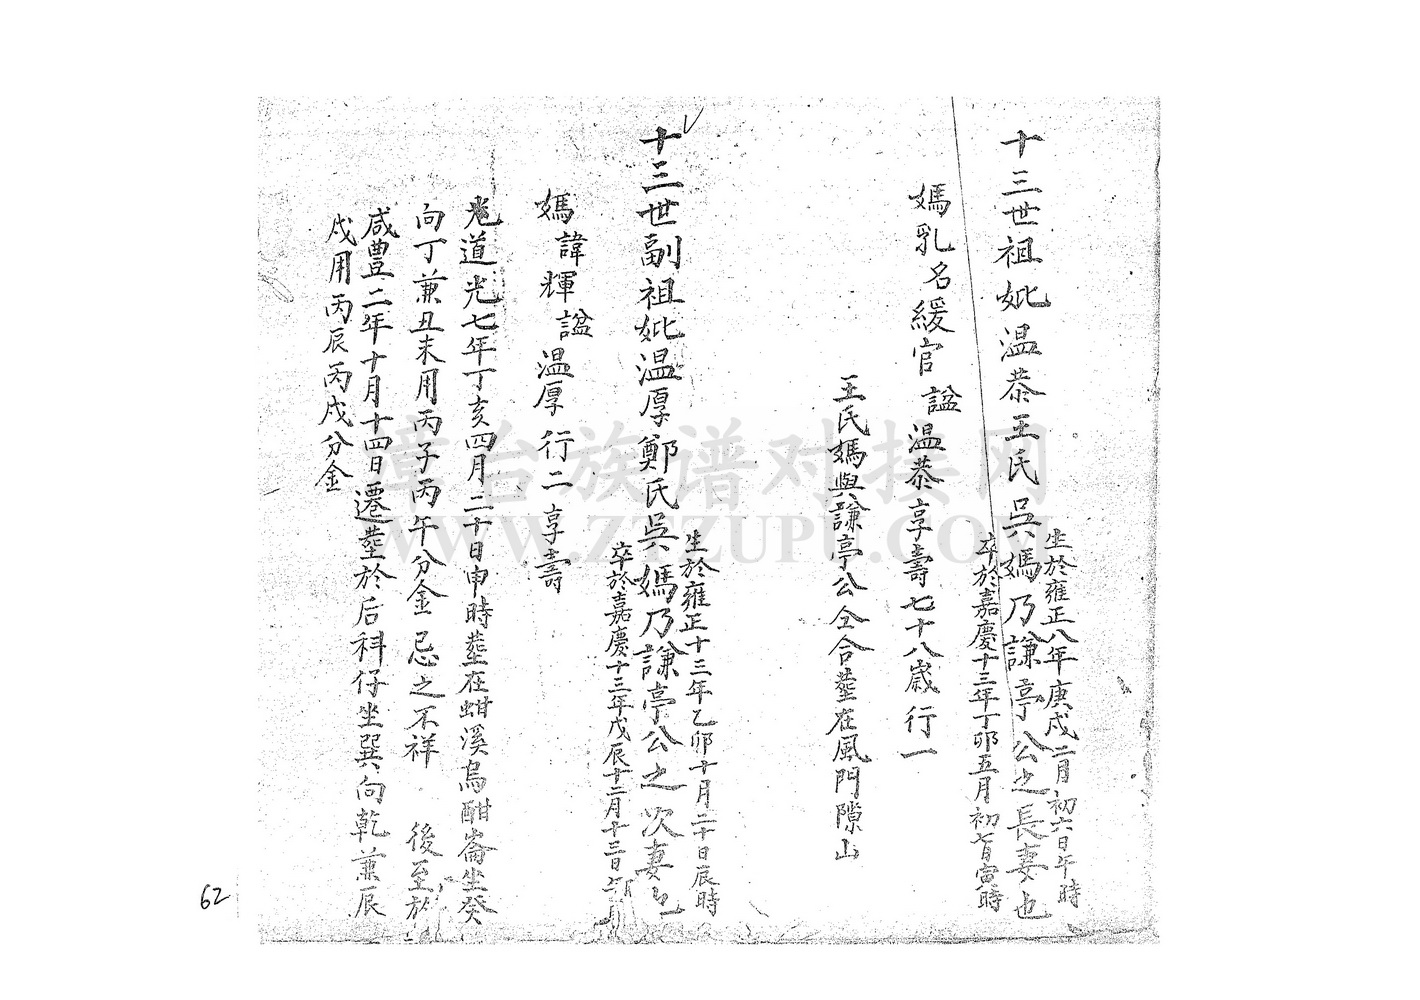 十三世祖妣温恭王氏吳媽乃謙亭公之長妻也
生於雍正八年庚戍二月初六日午時
卒於嘉慶十三年丁卯五月初七日寅時
媽乳名緩官諡温恭享壽七十八歲行一
王氏媽與謙亭公仝合塟在風門隙山
十三世副祖妣温厚鄭氏吳媽乃謙亭公之次妻也
生於雍正十三年乙卯十月二十日辰時
卒於嘉慶十三年戊辰十二月十三日
媽諱輝諡温厚行二享壽
光道光七年丁亥四月二十日申時塟在蚶溪烏酣崙坐癸
向丁兼丑未用丙子丙午分金忌之不祥 後至於
咸豊二年十月十四日遷塟於后科仔坐巽向乾兼辰
戍用丙辰丙戍分金
62
漳台族谱对接网
WWW.ZTZUPU.COM